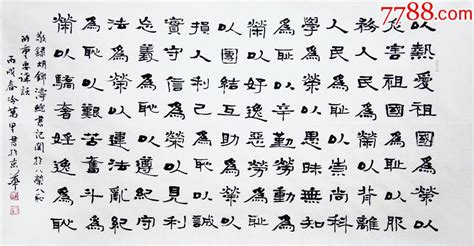 以熱愛祖國為榮以
危害祖國為恥以服
務人民為榮以背離
人民為恥以崇尚科
學為榮以愚昧無知
為恥以辛勤勞動為
榮以好逸惡勞為恥
以團結互助為榮以
損人利己為恥以誠
實守信為榮以見利
忘義為恥以遵紀守
法為榮以違法亂紀
為恥以艱苦奮鬥為
榮以驕奢淫逸為恥
敬錄胡錦濤總書記關於八榮八恥
的重要講話
丙戌春冷萬里書於京華
7788.com